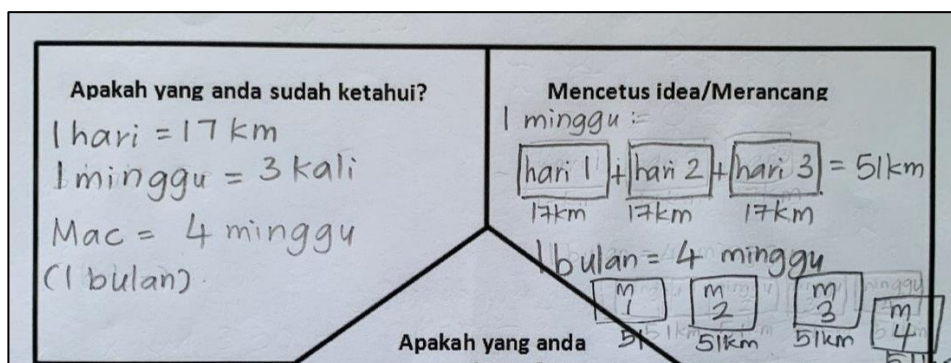 Apakah yang anda sudah ketahui?
1 hari = 17 km
1 minggu = 3 kali
Mac = 4 minggu
(1 bulan)
Mencetus idea/Merancang
1 minggu :-
hari 1 + hari 2 + hari 3 = 51km
17km 17km 17km
1 bulan = 4 minggu
m 1 m 2 m 3 m 4
51 51km 51km
Apakah yang anda